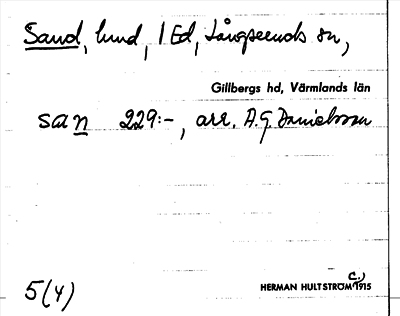 Sand, lund, i Ed, Långseruds sn,
Gillbergs hd, Värmlands län
san 229:-, arr. A.G. Danielsson
5(4)
HERMAN HULTSTRÖM (C.) 1915